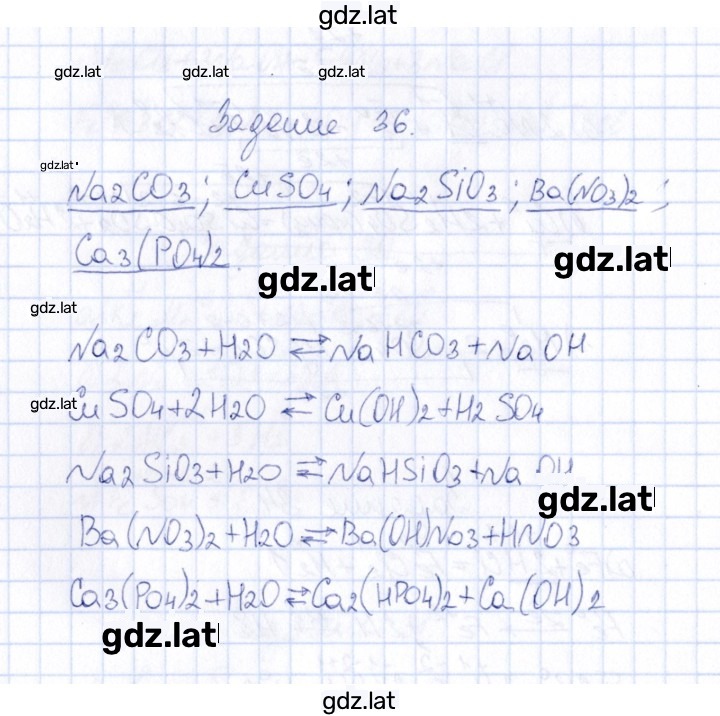 gdz.lat
gdz.lat gdz.lat gdz.lat
Задание 36.
gdz.lat
Na2CO3; CuSO4; Na2SiO3; Ba(NO3)2;
Ca3(PO4)2
gdz.lat gdz.lat
gdz.lat
Na2CO3+H2O ⇄ NaHCO3+NaOH
gdz.lat
CuSO4+2H2O ⇄ Cu(OH)2+H2SO4
Na2SiO3+H2O ⇄ NaHSiO3+NaOH
gdz.lat
Ba(NO3)2+H2O ⇄ Ba(OH)No3+HNO3
Ca3(PO4)2+H2O ⇄ Ca2(HPO4)2+Ca(OH)2
gdz.lat
gdz.lat